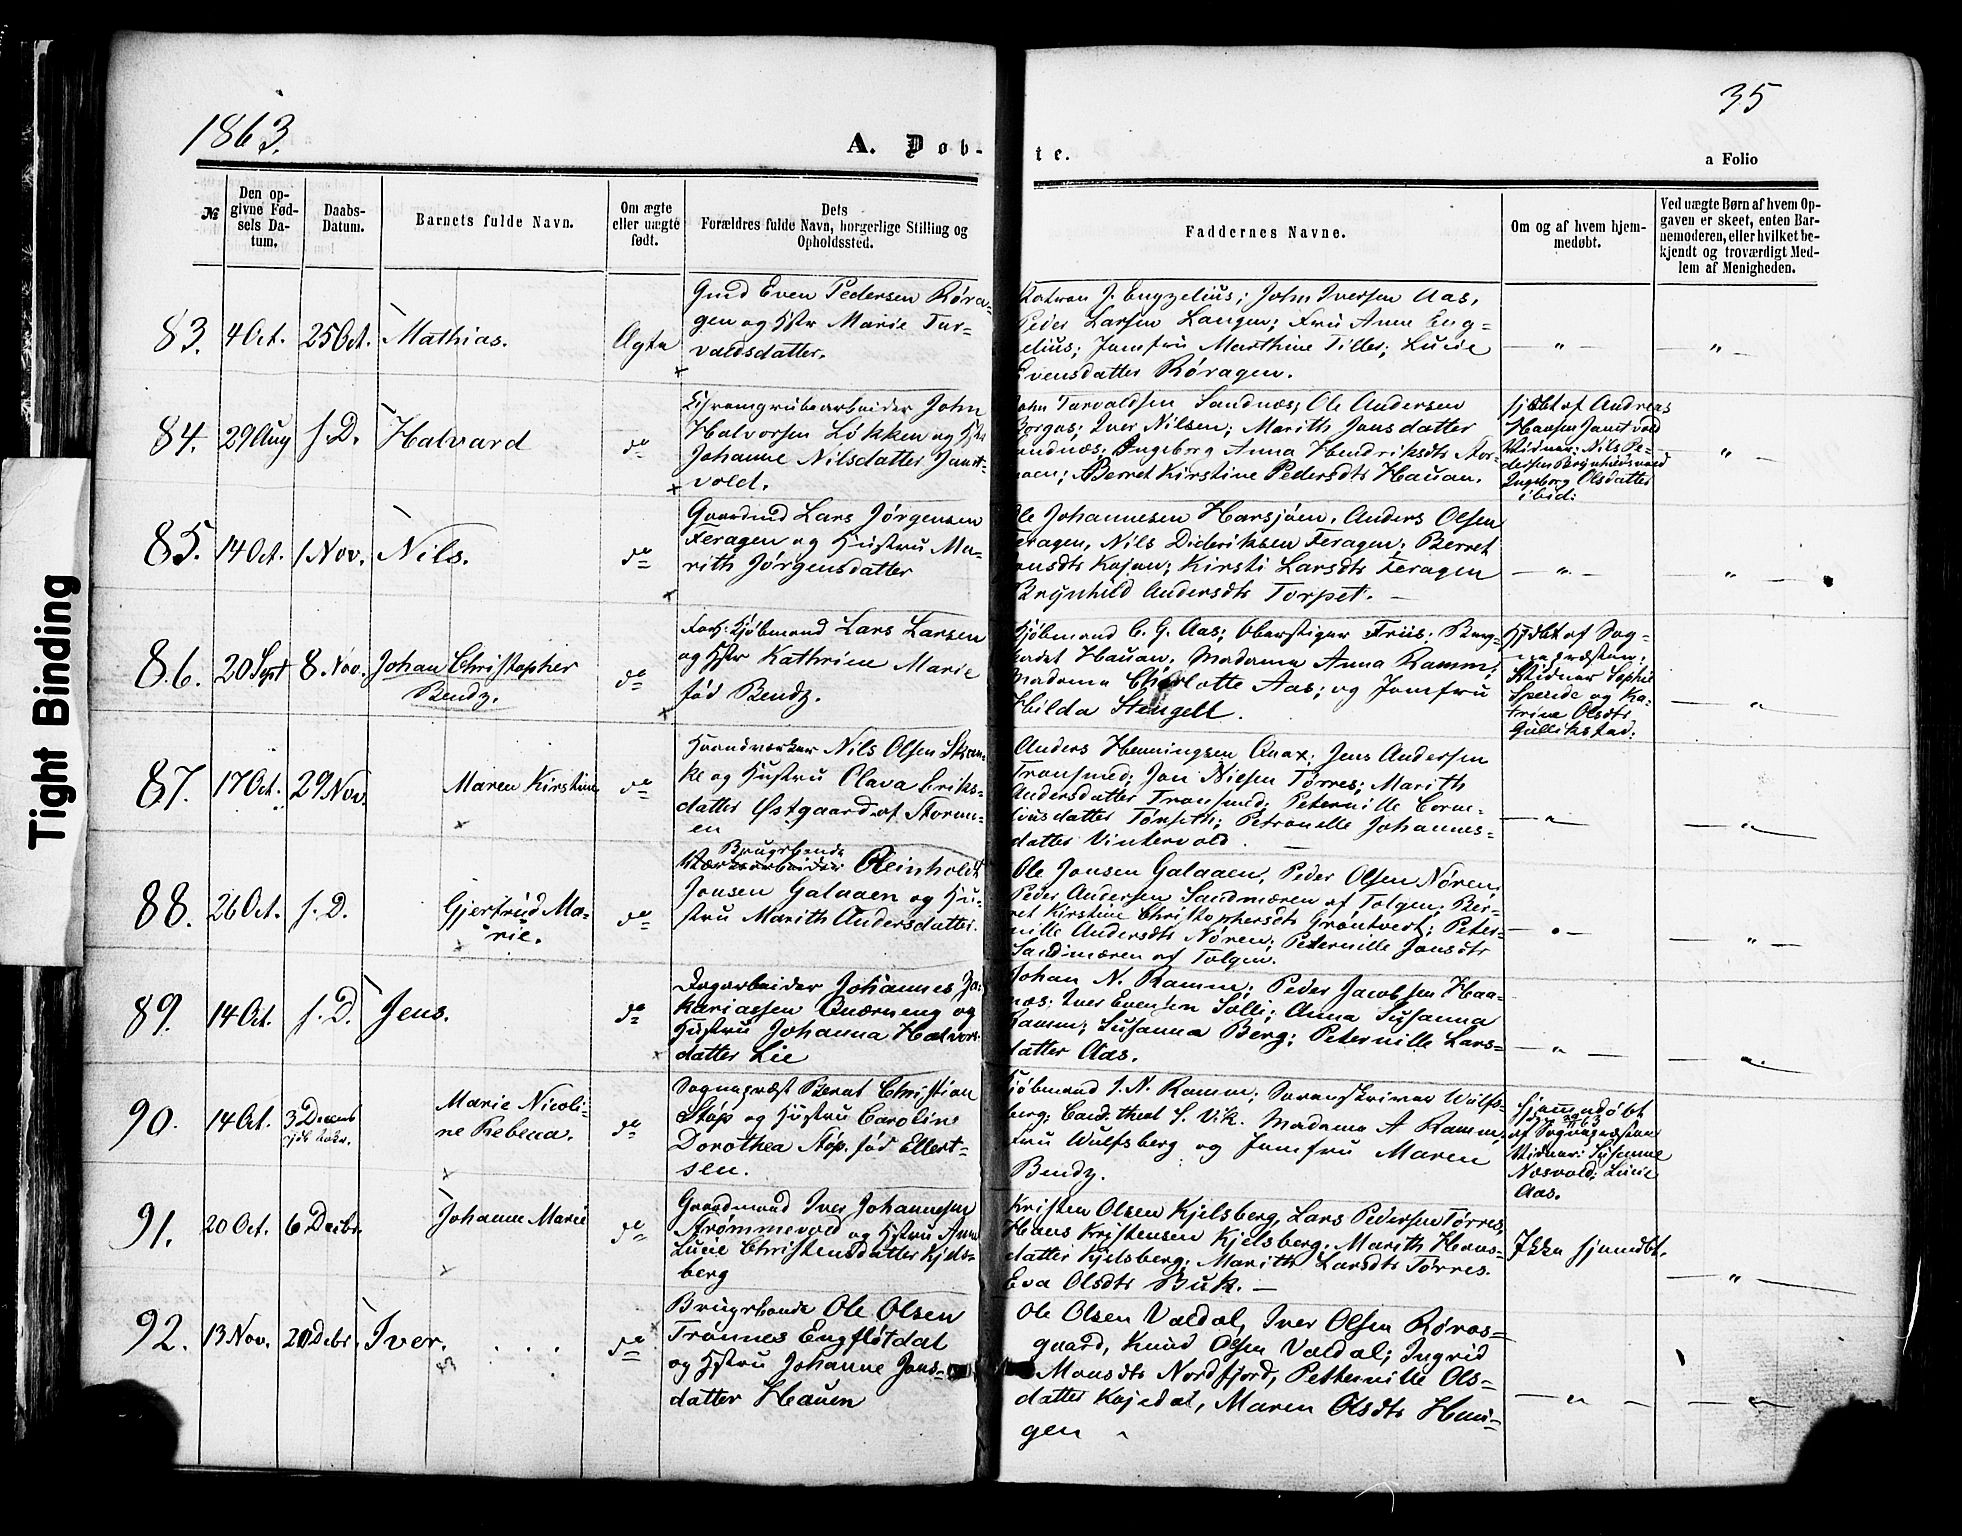 1863.
35
A. Døb-
te.
a Folio
№
Den op-
givne Fød-
sels Da-
tum.
Daabs-
Datum.
Barnets fulde Navn.
Om ægte
eller uægte
født.
Dets
Forældres fulde Navn, borgerlige Stilling og
Opholdssted.
Faddernes Navne.
Om og af hvem hjem-
medøbt.
Ved uægte Børn af hvem Op-
gaven er skeet, enten Bar-
nemoderen, eller hvilket be-
kjendt og troværdigt Med-
lem af Menigheden.
83. 4 Oct. 25 Oct. Mathias. Ægte
Gmd Even Pedersen Røra-
gen og Hstr Marie Tar-
valdsdatter.
J. Engzelius; John Iversen Aas,
Peder Larsen Langen; Fru Anne Eng-
elius; Jomfru Marthine Tiller; Lucie
Evensdatter Røragen.
84. 29 Aug s. D. Halvard do
John
Halvorsen Løkken og Hstr
Johanne Nilsdatter Jamt-
vold.
John Tarvaldsen Sandnæs; Ole Andersen
Borgos; Iver Nilsen; Marith Jonsdatter
Sandnæs; Ingeborg Anna Hendriksdtr Stor-
Berret Kirstine Pedersdtr Hauan.
hjdbt af Andreas
Hansen Jamtvold
Vidner: Nils Pe-
dersen Brynhildsvold
Ingeborg Olsdatter
ibid:
85. 14 Oct. 1 Nov. Nils. do
Gaardmd Lars Jørgensen
Feragen og Hustru Ma-
rith Jørgensdatter
Ole Johannesen Harsjøen, Anders Olsen
Feragen, Nils Dideriksen Feragen; Berret
Kojan; Kirsti Larsdtr Feragen
Brynhild Andersdtr Torpet. —
86. 20 Sept 8. Nov. Johan Christopher
Bendz. do
Kjøbmand Lars Larsen
og Hstr Kathrine Marie
fød Bendz.
Kjøbmand C. G. Aas; Oberstiger Friis; Berg-
kadet Hauan; Madame Anna Ramm;
Madame Charlotte Aas; og Jomfru
Hilda Stengell.
Hjdbt af Sog-
nepræsten;
Vidner Sophie
og Ka-
trine Olsdtr
Gullikstad.
87. 17 Oct. 29 Nov. Maren Kirstine do
Haandværker Nils Olsen Skran-
ke og Hustru Olava Eriks-
datter Østgaard af Stormo-
en
Anders Henningsen Qvax; Jens Andersen
Tronsmed; Jon Nilsen Tørres; Marith
Andersdatter Tronsmed; Peternille Corne-
liusdatter Tørseth; Petronelle Johannes-
datter Vintervold.
88. 26 Oct. s. D. Gjertrud Ma-
rie. do
Brugsbonde
Reinholdt
Jonsen Galaaen og Hu-
stru Marith Andersdatter.
Ole Jonsen Galaaen, Peder Olsen Nøren;
Peder Andersen Sandmæren af Tolgen; Ber-
ret Kirstine Christophersdtr Grøntvedt; Peter-
nille Andersdtr Nøren; Peternille Jonsdtr
Sandmæren af Tolgen.
89. 14 Oct. s. D. Jens. do
Dagarbeider Johannes Za-
kariassen Qværneng og
Hustru Johanna Halvors-
datter Lie
Johan N. Ramm; Peder Jacobsen Haa-
næs; Iver Evensen Solli; Anna Susanna
Ramm; Susanna Berg; Peternille Lars-
datter Aas.
90. 14 Oct. 3 Decemb Marie Nicoli-
ne Rebecca. do
Sognepræst Bernt Christian
Støp og Hustru Caroline
Dorothea Støp fød Ellert-
sen.
Kjøbmand J. N. Ramm; Sorenskriver Wulfs-
berg; Cand. theol S. Vik. Madame A Ramm;
Fru Wulfsberg og Jomfru Maren
Bendz.
hjemmedøbt
af Sognepræsten
Vidner: Susanne
Næsvold; Lucie
Aas.
91. 20 Oct. 6 Decbr. Johanne Marie do
Gaardmand Iver Johannesen
Strømmevold og Hstru Anne
Lucie Christensdatter Kjels-
berg
Kristen Olsen Kjelsberg, Lars Pedersen Tørres,
Hans Kristensen Kjelsberg; Marith Hans-
datter Kjelsberg; Marith Larsdtr Tørres.
Eva Olsdtr Buk. —
Ikke hjemdbt.
92. 13 Nov. 20 Debr. Iver. do
Brugsbonde Ole Olsen
Trønnes Engfløtdal
og Hstru Johanne Jons-
datter Hauen
Ole Olsen Valdal, Iver Olsen Røros-
gaard, Knud Olsen Valdal; Ingrid
Monsdtr Nordfjord, Petternille Ols-
datter Kojedal, Maren Olsdtr Hau-
gen
Tight Binding